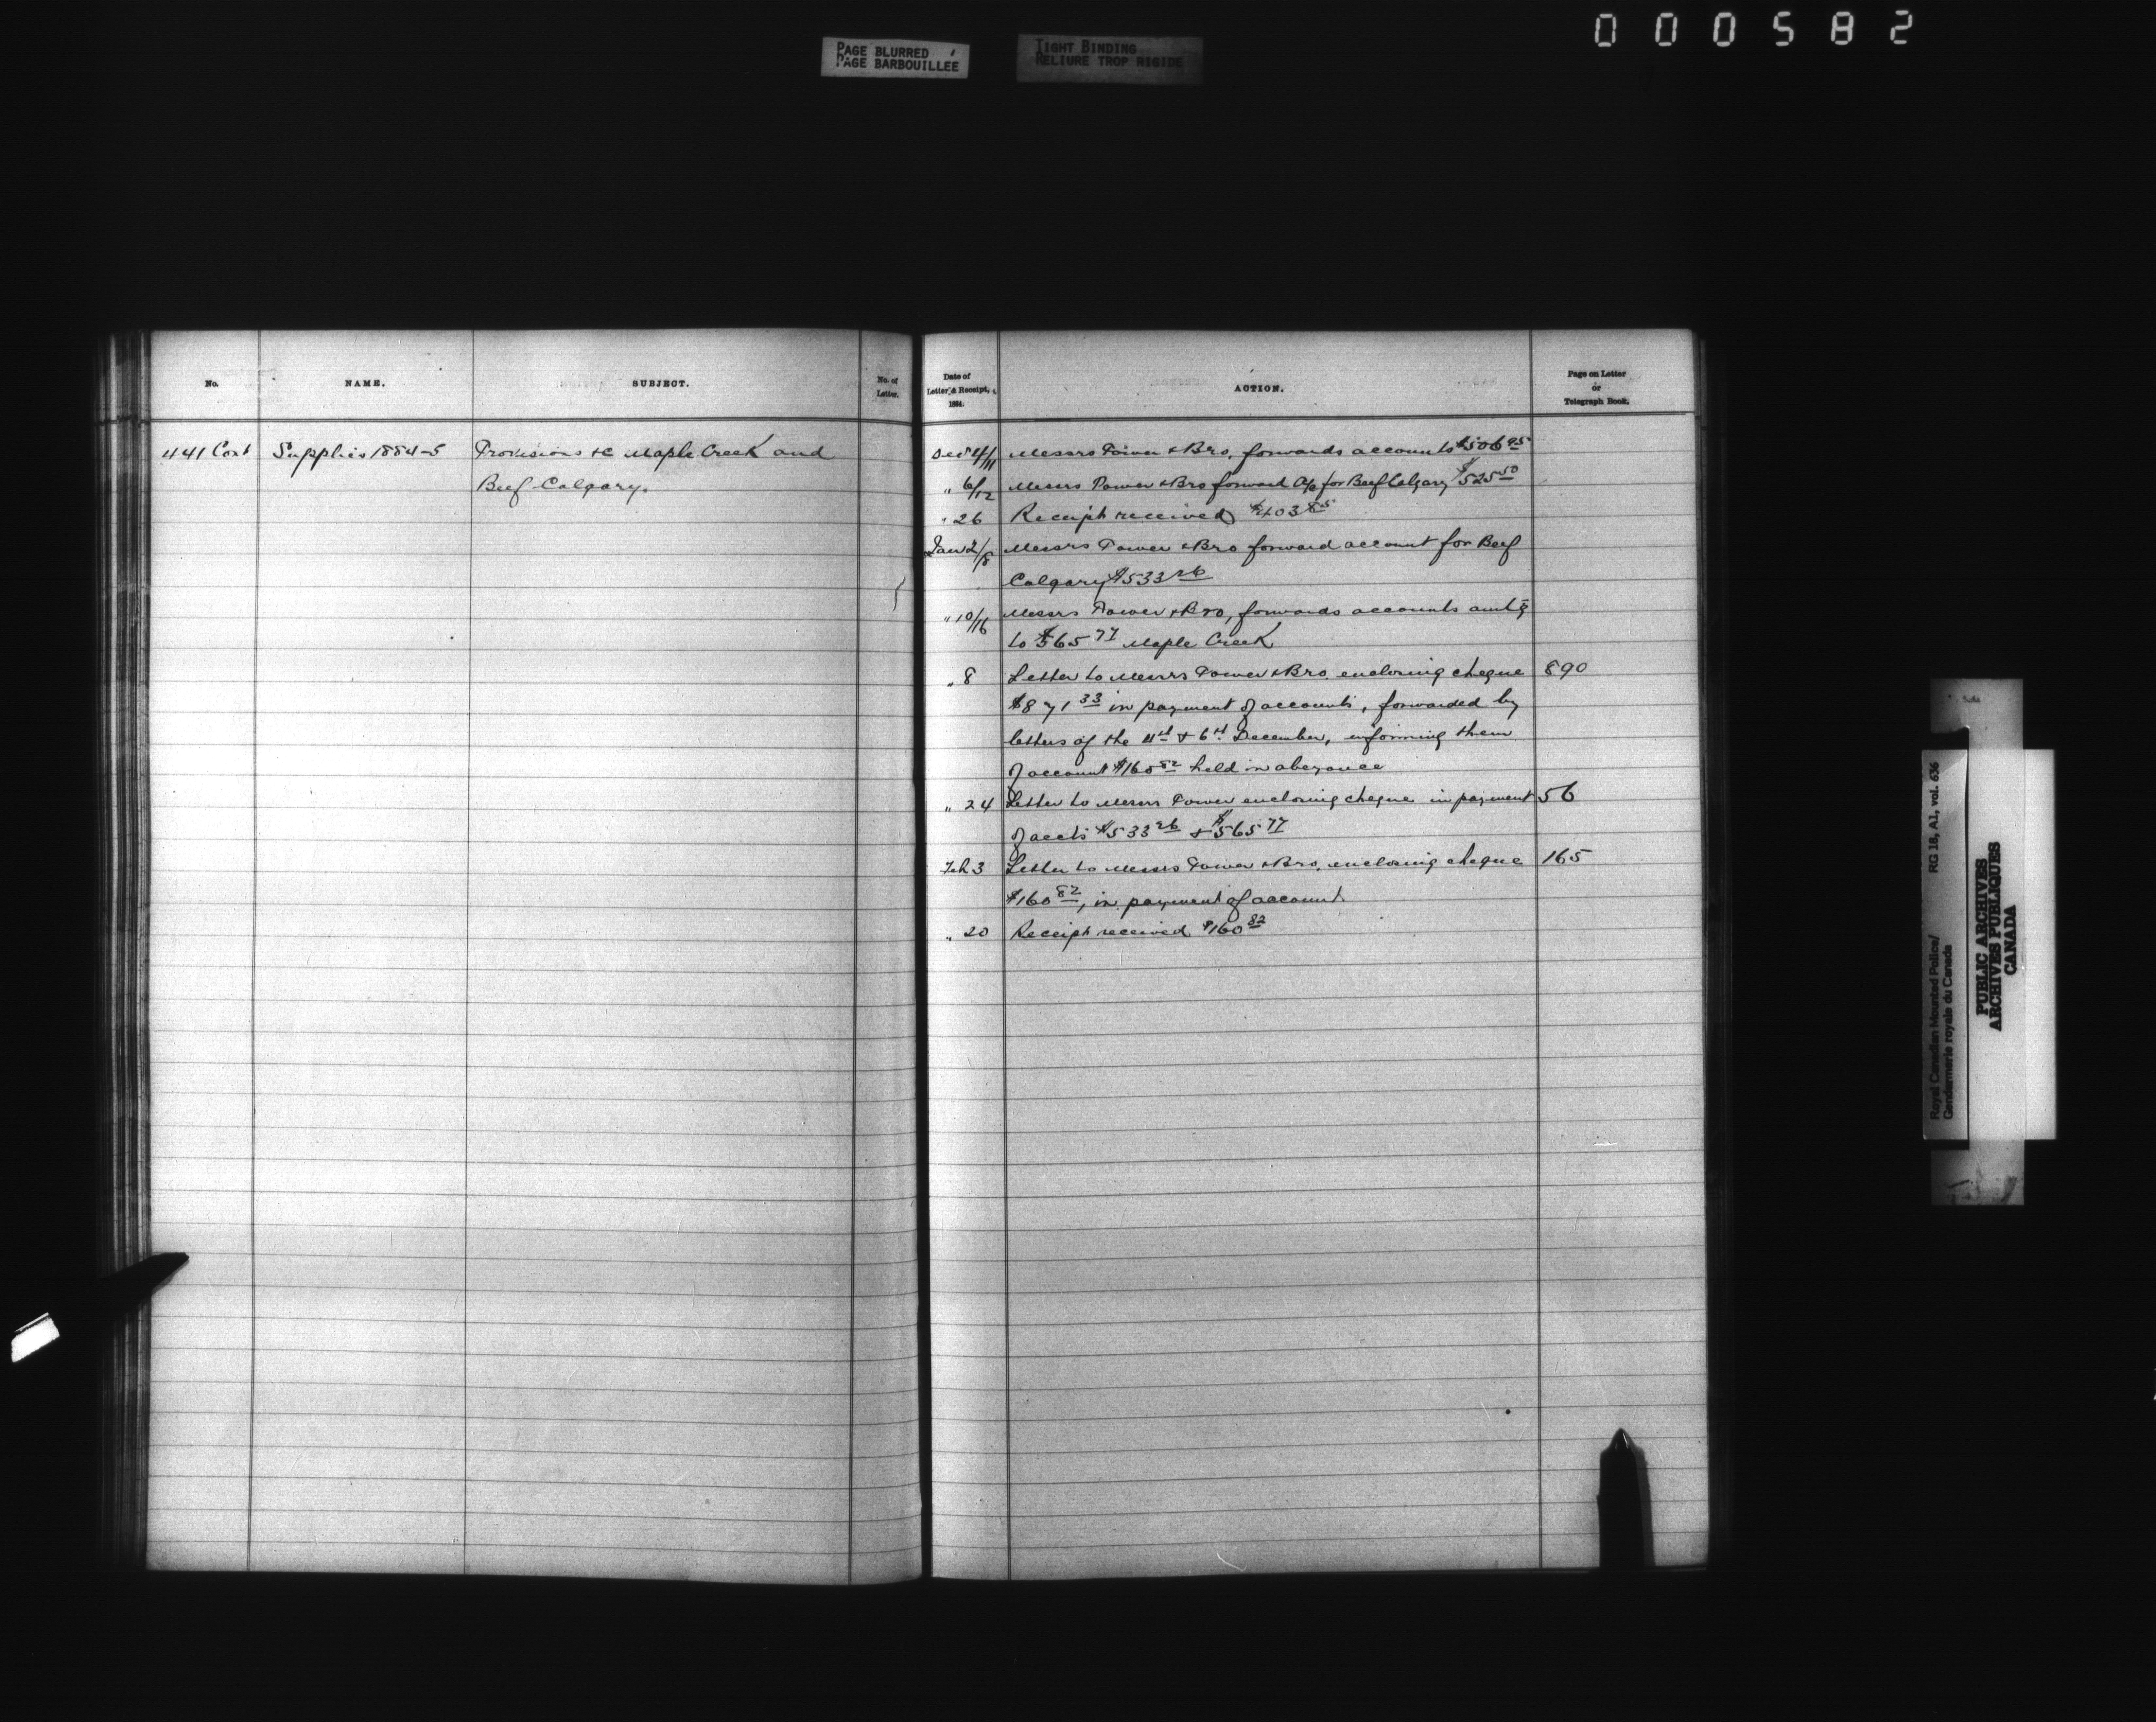 000582
PAGE BLURRED
PAGE BARBOUILLÉE
TIGHT BINDING
RELIURE TROP RIGIDE
No.
NAME.
SUBJECT.
No. of
Letter.
Date of
Letter & Receipt,
1884.
ACTION.
Page on Letter
or
Telegraph Book.
441 Cont Supplies 1884-5 Provisions &c Maple Creek and
Beef Calgary.
Messrs Power & Bro. forwards accounts $506 95
" 6/12 Messrs Power & Bro forward a/c for Beef Calgary $525 50
" 26 Receipt received $403
Jan 2/8 Messrs Power & Bro forward account for Beef
Calgary $533 26
" 10/16 Messrs Power & Bro, forwards accounts amtg
to $565 77 Maple Creek
" 8 Letter to Messrs Power & Bro. enclosing cheque 890
$871 33 in payment of accounts, forwarded by
letters of the & 6th December, informing them
of account $160 82 held in abeyance
" 24 Letter to Messrs Power enclosing cheque in payment 56
of accts $533 26 & $565 77
Feb 3 Letter to Messrs Power & Bro. enclosing cheque 165
$160 82, in payment of account
" 20 Receipt received $160 82
Royal Canadian Mounted Police/ RG 18, A1, vol. 636
Gendarmerie royale du Canada
PUBLIC ARCHIVES
ARCHIVES PUBLIQUES
CANADA